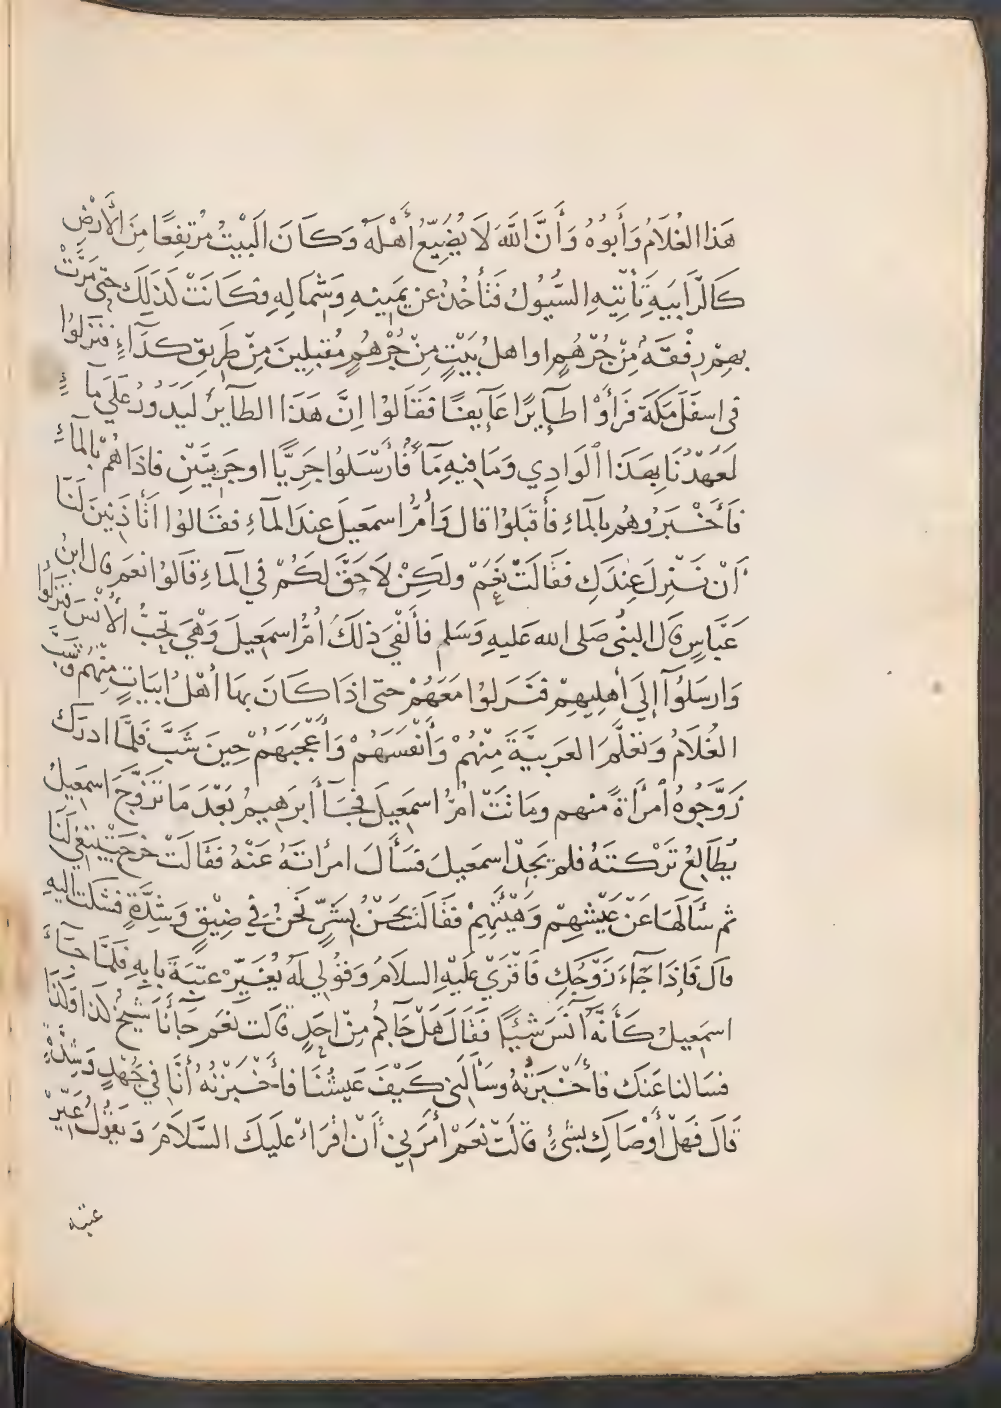 هَذَا الغُلَامُ وَأَبُوهُ وَأَنَّ اللَّهَ لَا يُضَيِّعُ أَهْلَهُ وَكَانَ الْبَيْتُ مُرْتَفِعًا مِنَ الْأَرْضِ
كَالرَّابِيَةِ تَأْتِيهِ السُّيُولُ فَتَأْخُذُ عَنْ يَمِينِهِ وَشِمَالِهِ فَكَانَتْ كَذَلِكَ حَتَّى مَرَّتْ
بِهِمْ رِفْقَةٌ مِنْ جُرْهُمٍ او اهلُ بَيْتٍ مِنْ جُرْهُمٍ مُقْبِلِينَ مِنْ طَرِيقِ كَدَآءٍ فَنَزَلُوا
فى اسفَلِ مَكَةَ فَرَأَوْا طَآيِرًا عَايِفًا فَقَالُوا اِنَّ هَذَا الطآيِرُ لَيَدُورُ عَلَى مَآءٍ
لَعَهْدُنَا بِهَذَا الْوَادِي وَمَا فِيهِ مَآءٌ فَأَرْسَلُوا جَرِيًّا او جَرِيَّيْنِ فَاذَا هُمْ بِالمَآءِ
فَأَخْبَرُوهُم بِالمَاءِ فَأَقْبَلُوا قال وَأُمُّ اسمعِيلَ عِندَ المَاءِ فقَالُوا أَتَأْذَنِينَ لَنَا
أَنْ نَنْزِلَ عِنْدَكِ فَقَالَتْ نَعَمْ ولَكِنْ لَا حَقَّ لَكُمْ فِي المَاءِ قَالُوا نعَم قال ابنُ
عَبَّاسٍ قَالَ النبىُّ صَلى الله عَليهِ وَسَلم فأَلْفَى ذلكَ أُمُّ اسمَعِيلَ وَهْيَ تُحِبُّ الْأُنْسَ فَنَزَلُوا
وَارسَلُوآ إِلَى أَهلِيهِمْ فَنَزَلوُا مَعَهُمْ حتى اذَا كَانَ بِهَا أهْلُ ابيَاتٍ مِنْهُم وَشَبَّ
الغُلَامُ وَتَعَلَّمَ العَرَبِيَّةَ مِنْهُمْ وَأَنْفَسَهُمْ وَأَعْجَبَهُمْ حِينَ شَبَّ فَلَمَّا ادرَكَ
زَوَّجُوهُ امْرَأَةً مِنهم ومَاتَتْ أُمُّ اسمَعِيلَ فَجَآءَ ابرَهِيمُ بَعْدَ مَا تَزَوَّجَ اسمَعِيلُ
يُطَالِعُ تَرْكَتَهُ فلم يَجِدْ اسمعِيلَ فَسَأَلَ امرأتَهُ عَنْهُ فَقَالَتْ خرَجَ يَبْتَغِي لَنَا
ثم سَأَلَهَا عَنْ عَيْشِهِمْ وَهَيْئَتِهِمْ فَقَالَتْ نَحْنُ بِشَرٍّ نَحْنُ فِي ضِيْقٍ وَشِدَّةٍ فَشَكَتْ اليهِ
قالَ فَإِذَا جَآءَ زَوْجُكِ فَاقْرَيْ عَلَيْهِ السلَامَ وَقُولِي لَهُ يُغَيِّرْ عَتَبَةَ بَابِهِ فَلَمَّا جَآءَ
اسمَعِيلُ كَأَنَّهُ آنَسَ شَيْئًا فَقَالَ هَلْ جَآكُمْ مِنْ اَحَدٍ قَالَت نَعَم جَآنَا شَيخٌ كَذَا وَكَذَا
فسَالنا عَنكَ فأَخْبَرْتُهُ وسَأَلَنِى كَيْفَ عَيشُنَا فأَخْبَرْتُهُ أنَّا فِي جَهْدٍ وَشِدَّةٍ
قَالَ فَهَلْ أَوْصَاكِ بِشَىْءٍ قَالَتْ نَعَمْ أَمَرَنِي أَنْ اقْرَاءَ عَلَيكَ السَّلَامَ وَيَقُولُ غَيِّرْ
عتبه